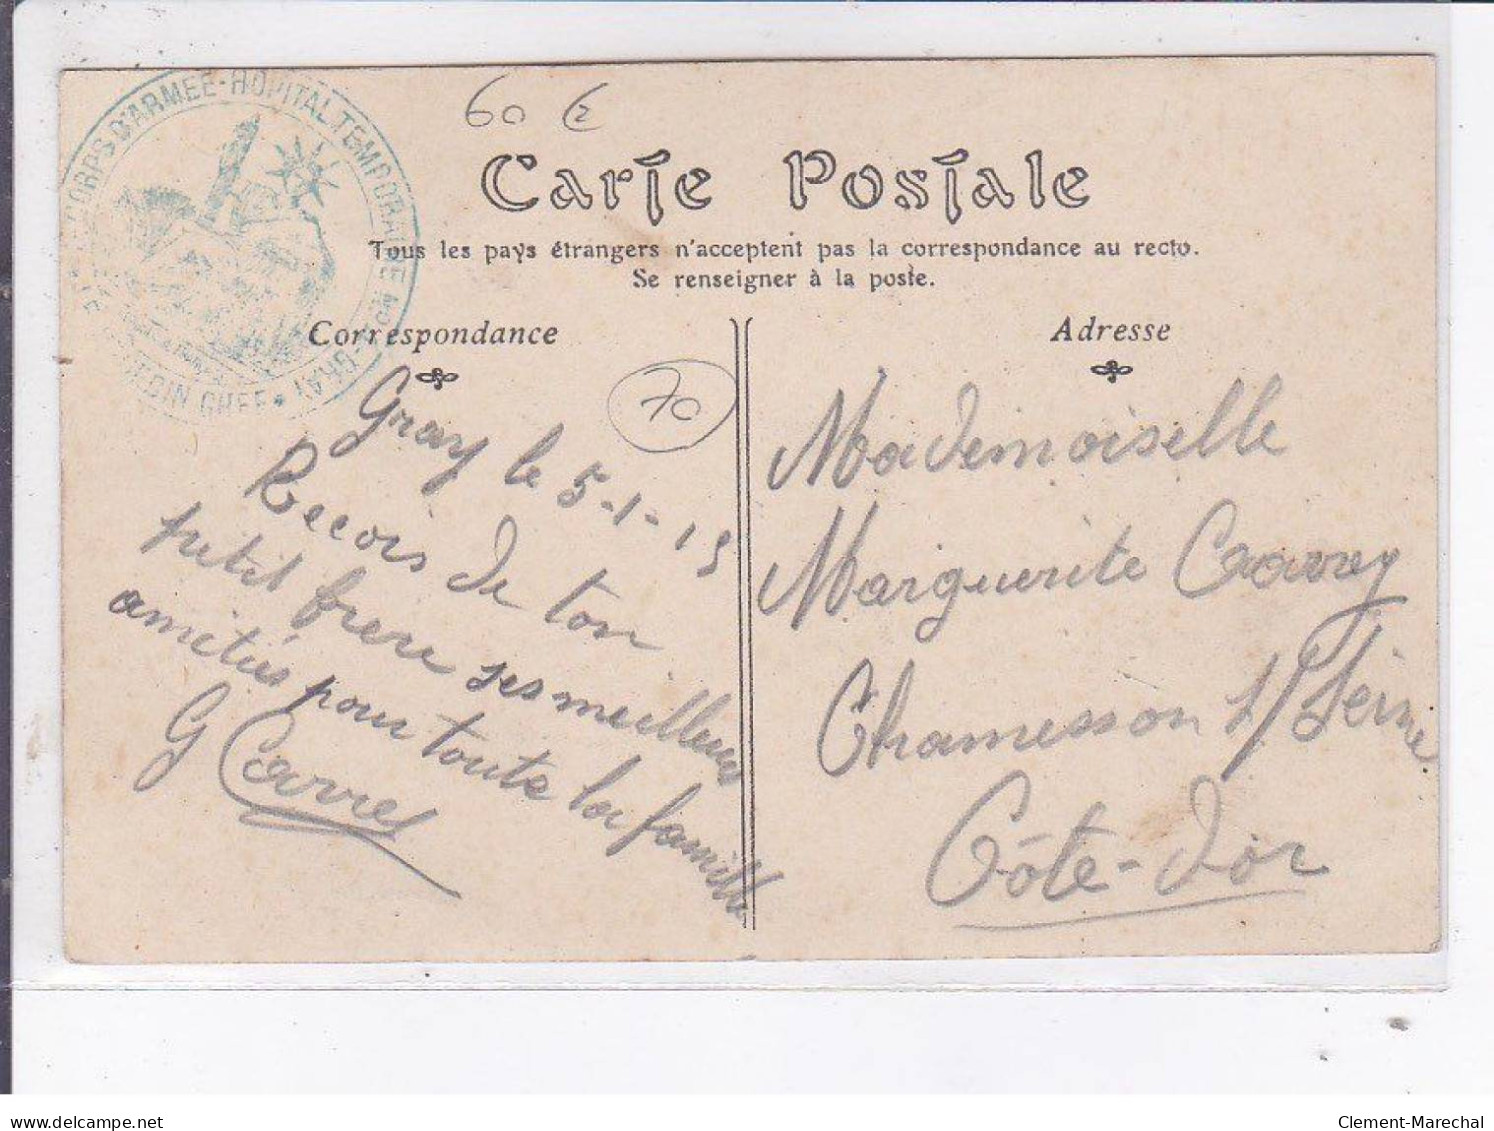 CORPS D'ARMÉE - HOPITAL TEMPORAIRE No
GRAY
CHEF
60 €
Carte Postale
Tous les pays étrangers n'acceptent pas la correspondance au recto.
Se renseigner à la poste.
Correspondance
70
Gray le 5-1-15
Recois de ton
petit frere ses meilleures
amitiés pour toute la famille
G Carrey
Adresse
Mademoiselle
Marguerite Carrey
Chamesson s/Seine
Côte-d'or
delcampe.net
Clement-Marechal